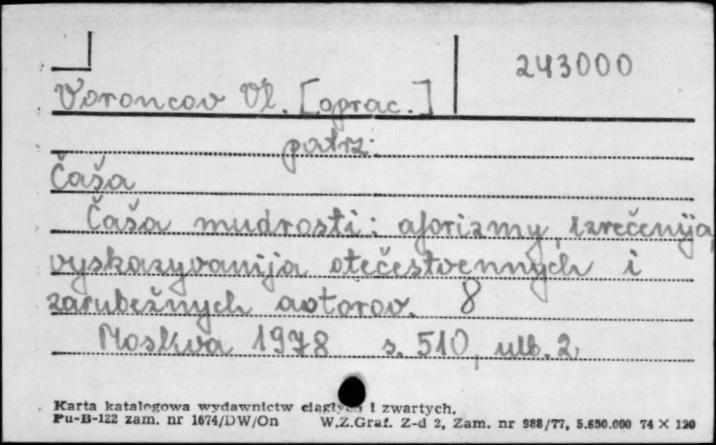 243000
Voroncov Vl. [oprac.]
patrz:
Čaša
Čaša mudrosti: aforizmy, izrečenija,
vyskazyvanija otečestvennych i
zarubežnych avtorov. 8
Moskva 1978 s. 510, ulb. 2
Karta katalogowa wydawnictw ciągłych i zwartych.
Pu-B-122 zam. nr 1674/DW/On W.Z.Graf. Z-d 2, Zam. nr 988/77, 5.650.000 74 X 120